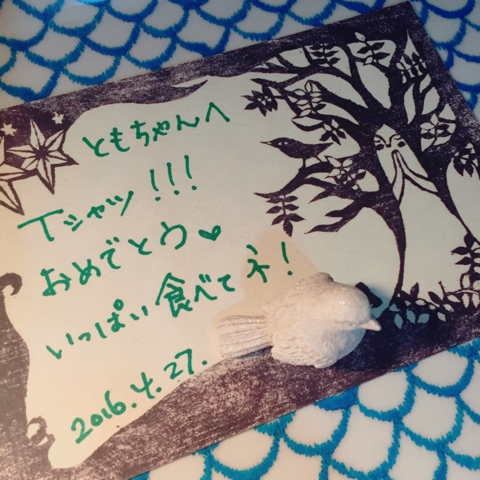 ともちゃんへ
Tシャツ!!!
おめでとう♥
いっぱい食べてネ!
2016.4.27.